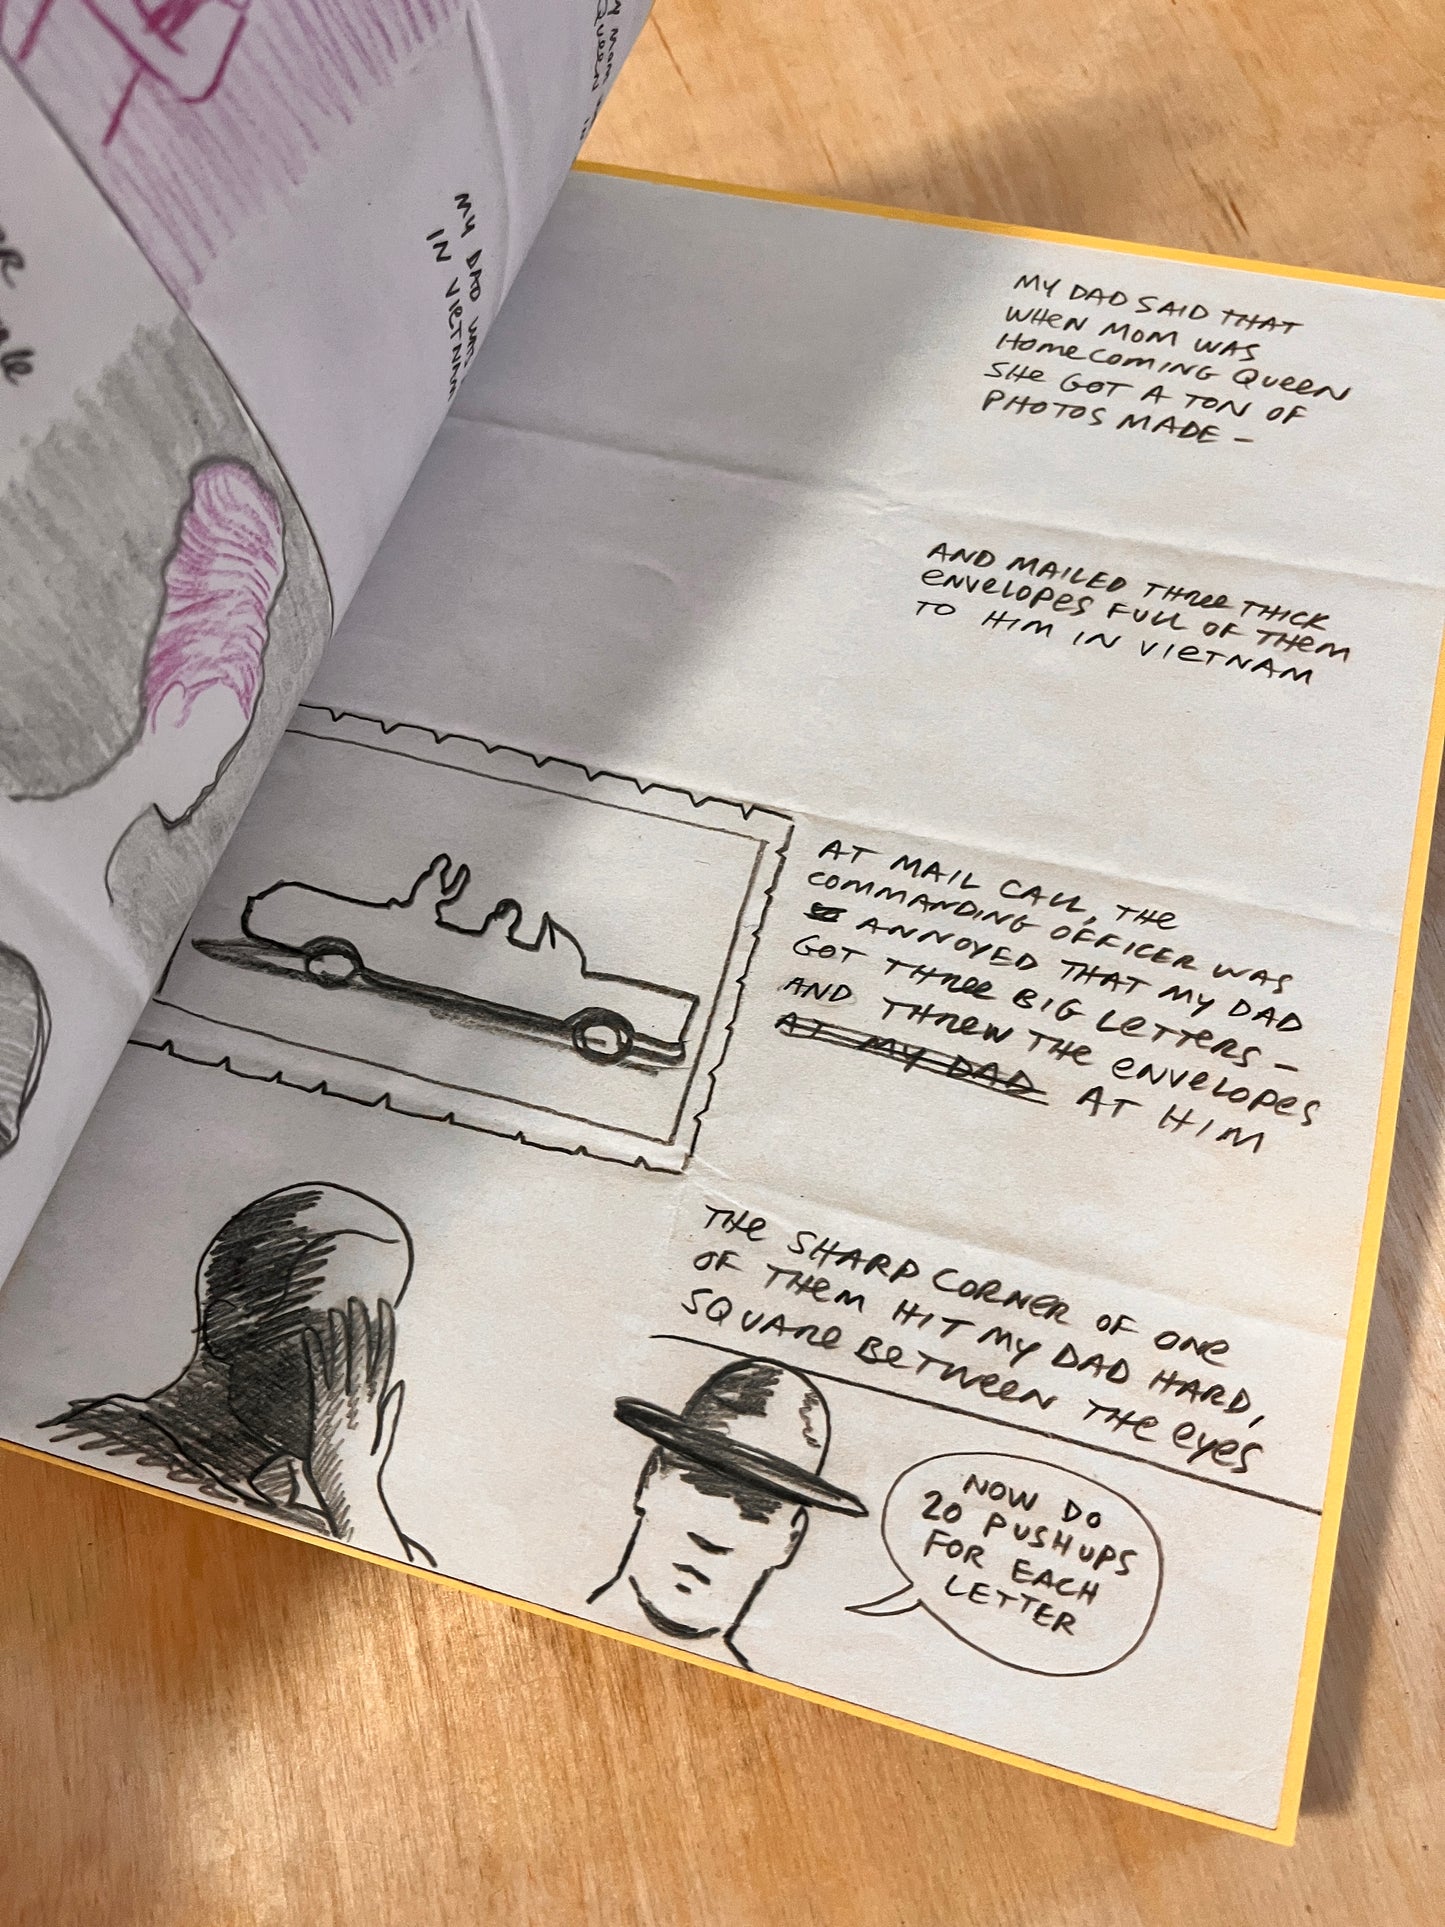 MY MOM
QUEEN
IN
MY DAD
IN VIETNAM
MY DAD SAID THAT
WHEN MOM WAS
HOMECOMING QUEEN
SHE GOT A TON OF
PHOTOS MADE —
AND MAILED THREE THICK
ENVELOPES FULL OF THEM
TO HIM IN VIETNAM
AT MAIL CALL, THE
COMMANDING OFFICER WAS
ANNOYED THAT MY DAD
GOT THREE BIG LETTERS —
AND THREW THE ENVELOPES
AT MY DAD AT HIM
THE SHARP CORNER OF ONE
OF THEM HIT MY DAD HARD,
SQUARE BETWEEN THE EYES
NOW DO
20 PUSHUPS
FOR EACH
LETTER